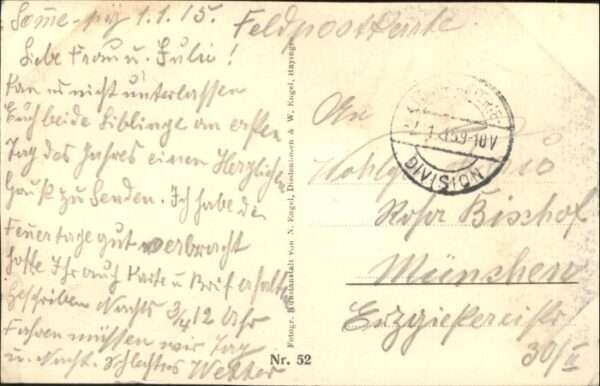 Somme-py 1.1.15.
Liebe Frau u. Julie!
Kan es nicht unterlassen
Euch beide Liblinge am ersten
Tag des Jahres einen Herzlichen
Gruß zu Senden. Ich habe die
Feuertage gut verbracht
hoffe Ihr auch Karte u Brif erhalten
Geschriben Nachts 3/4 12 Uhr
Fahren müssen wir Tag
u. Nacht. Schlechtes Wetter
Fotogr. Kunstanstalt von N. Engel, Diedenhofen & W. Engel, Hayingen
Nr. 52
Feldpostkarte
9-10V
DIVISION
An
Rosa Bischof
München
Erzgießereistr
30/II